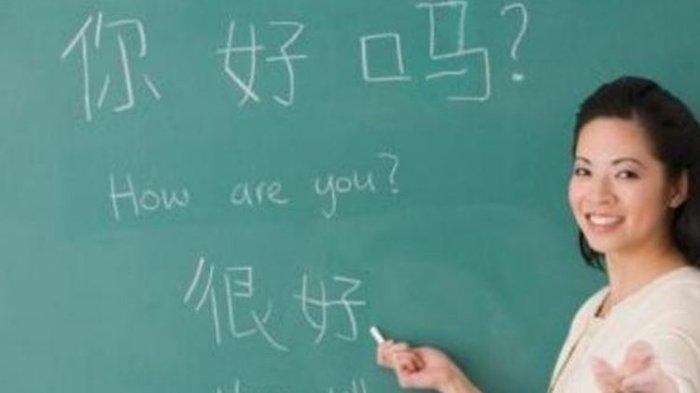 你 好 吗?
How are you?
很 好